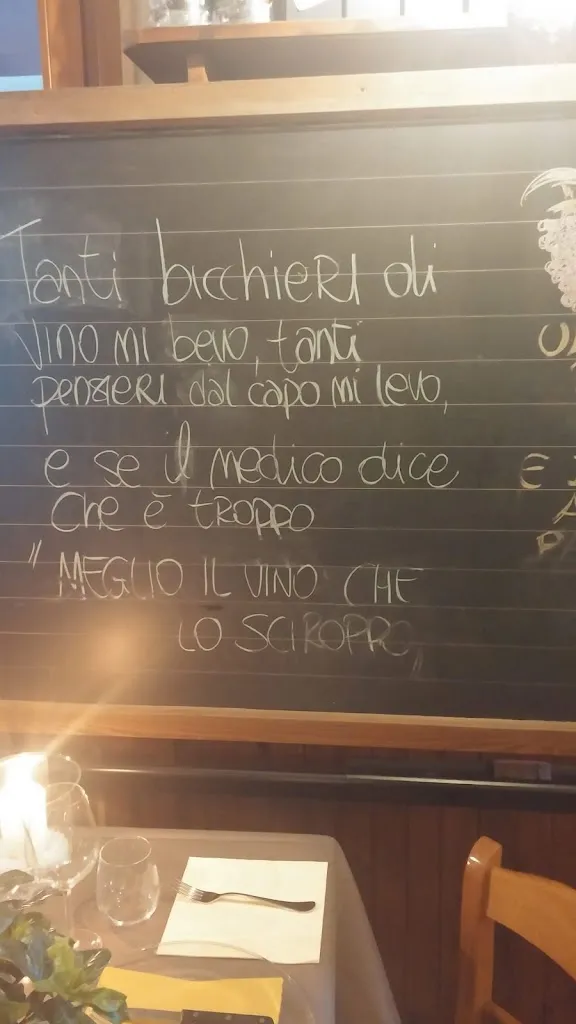 Tanti bicchieri di
vino mi bevo, tanti
penzieri dal capo mi levo,
e se il medico dice
che è troppo
"MEGLIO IL VINO CHE
LO SCIROPPO"
E